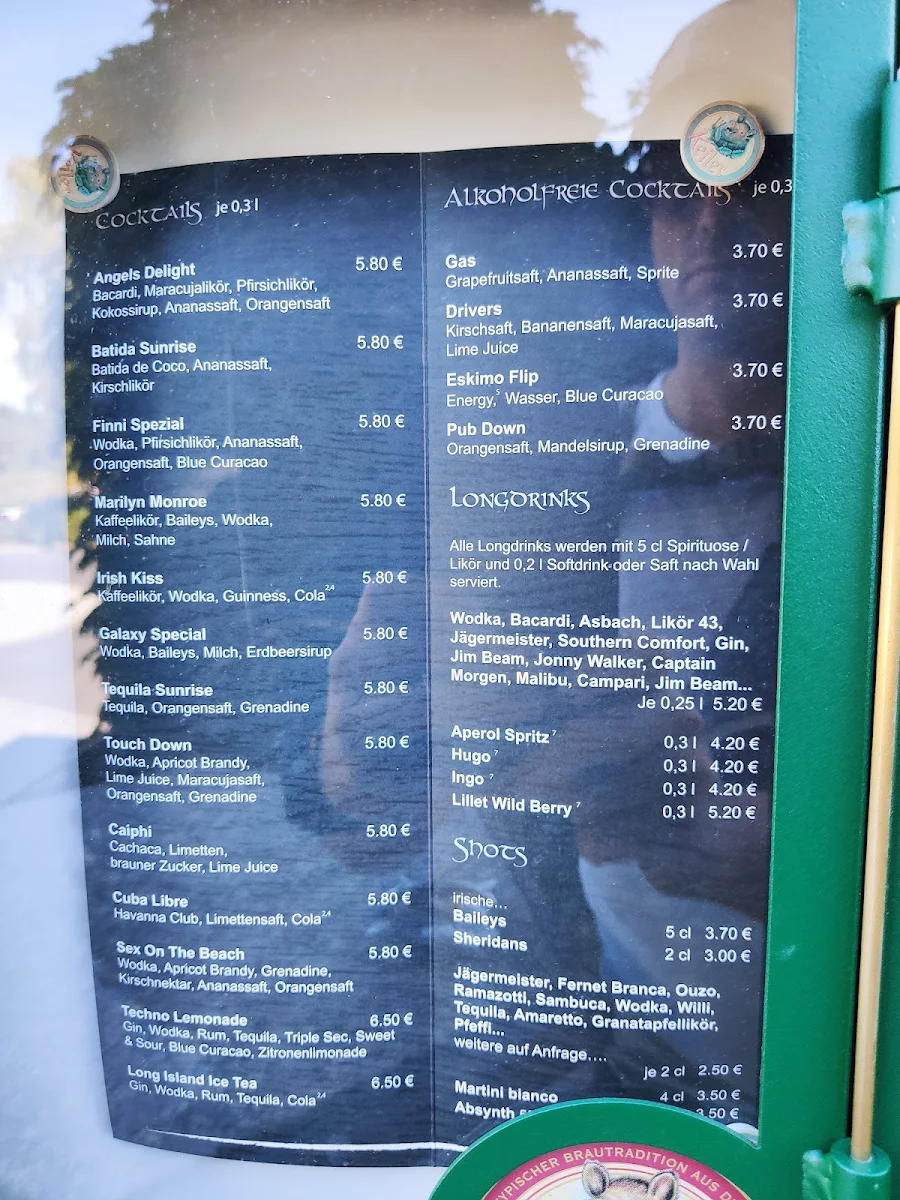 Cocktails je 0,3 l
Angels Delight 5.80 €
Bacardi, Maracujalikör, Pfirsichlikör,
Kokossirup, Ananassaft, Orangensaft
Batida Sunrise 5.80 €
Batida de Coco, Ananassaft,
Kirschlikör
Finni Spezial 5.80 €
Wodka, Pfirsichlikör, Ananassaft,
Orangensaft, Blue Curacao
Marilyn Monroe 5.80 €
Kaffeelikör, Baileys, Wodka,
Milch, Sahne
Irish Kiss 5.80 €
Kaffeelikör, Wodka, Guinness, Cola 2,4
Galaxy Special 5.80 €
Wodka, Baileys, Milch, Erdbeersirup
Tequila Sunrise 5.80 €
Tequila, Orangensaft, Grenadine
Touch Down 5.80 €
Wodka, Apricot Brandy,
Lime Juice, Maracujasaft,
Orangensaft, Grenadine
Caiphi 5.80 €
Cachaca, Limetten,
brauner Zucker, Lime Juice
Cuba Libre 5.80 €
Havanna Club, Limettensaft, Cola 2,4
Sex On The Beach 5.80 €
Wodka, Apricot Brandy, Grenadine,
Kirschnektar, Ananassaft, Orangensaft
Techno Lemonade 6.50 €
Gin, Wodka, Rum, Tequila, Triple Sec, Sweet
& Sour, Blue Curacao, Zitronenlimonade
Long Island Ice Tea 6.50 €
Gin, Wodka, Rum, Tequila, Cola 2,4
Alkoholfreie Cocktails je 0,3
Gas 3.70 €
Grapefruitsaft, Ananassaft, Sprite
Drivers 3.70 €
Kirschsaft, Bananensaft, Maracujasaft,
Lime Juice
Eskimo Flip 3.70 €
Energy,5 Wasser, Blue Curacao
Pub Down 3.70 €
Orangensaft, Mandelsirup, Grenadine
Longdrinks
Alle Longdrinks werden mit 5 cl Spirituose /
Likör und 0,2 l Softdrink oder Saft nach Wahl
serviert.
Wodka, Bacardi, Asbach, Likör 43,
Jägermeister, Southern Comfort, Gin,
Jim Beam, Jonny Walker, Captain
Morgen, Malibu, Campari, Jim Beam...
Je 0,25 l 5.20 €
Aperol Spritz 7 0,3 l 4.20 €
Hugo 7 0,3 l 4.20 €
Ingo 7 0,3 l 4.20 €
Lillet Wild Berry 7 0,3 l 5.20 €
Shots
irische...
Baileys 5 cl 3.70 €
Sheridans 2 cl 3.00 €
Jägermeister, Fernet Branca, Ouzo,
Ramazotti, Sambuca, Wodka, Willi,
Tequila, Amaretto, Granatapfellikör,
Pfeffi...
weitere auf Anfrage....
je 2 cl 2.50 €
Martini bianco 4 cl 3.50 €
Absynth 3.50 €
TYPISCHER BRAUTRADITION AUS